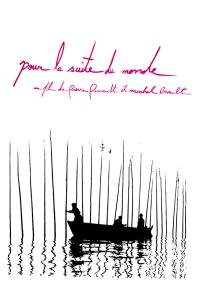 pour la suite du monde
un film de Pierre Perrault et Michel Brault